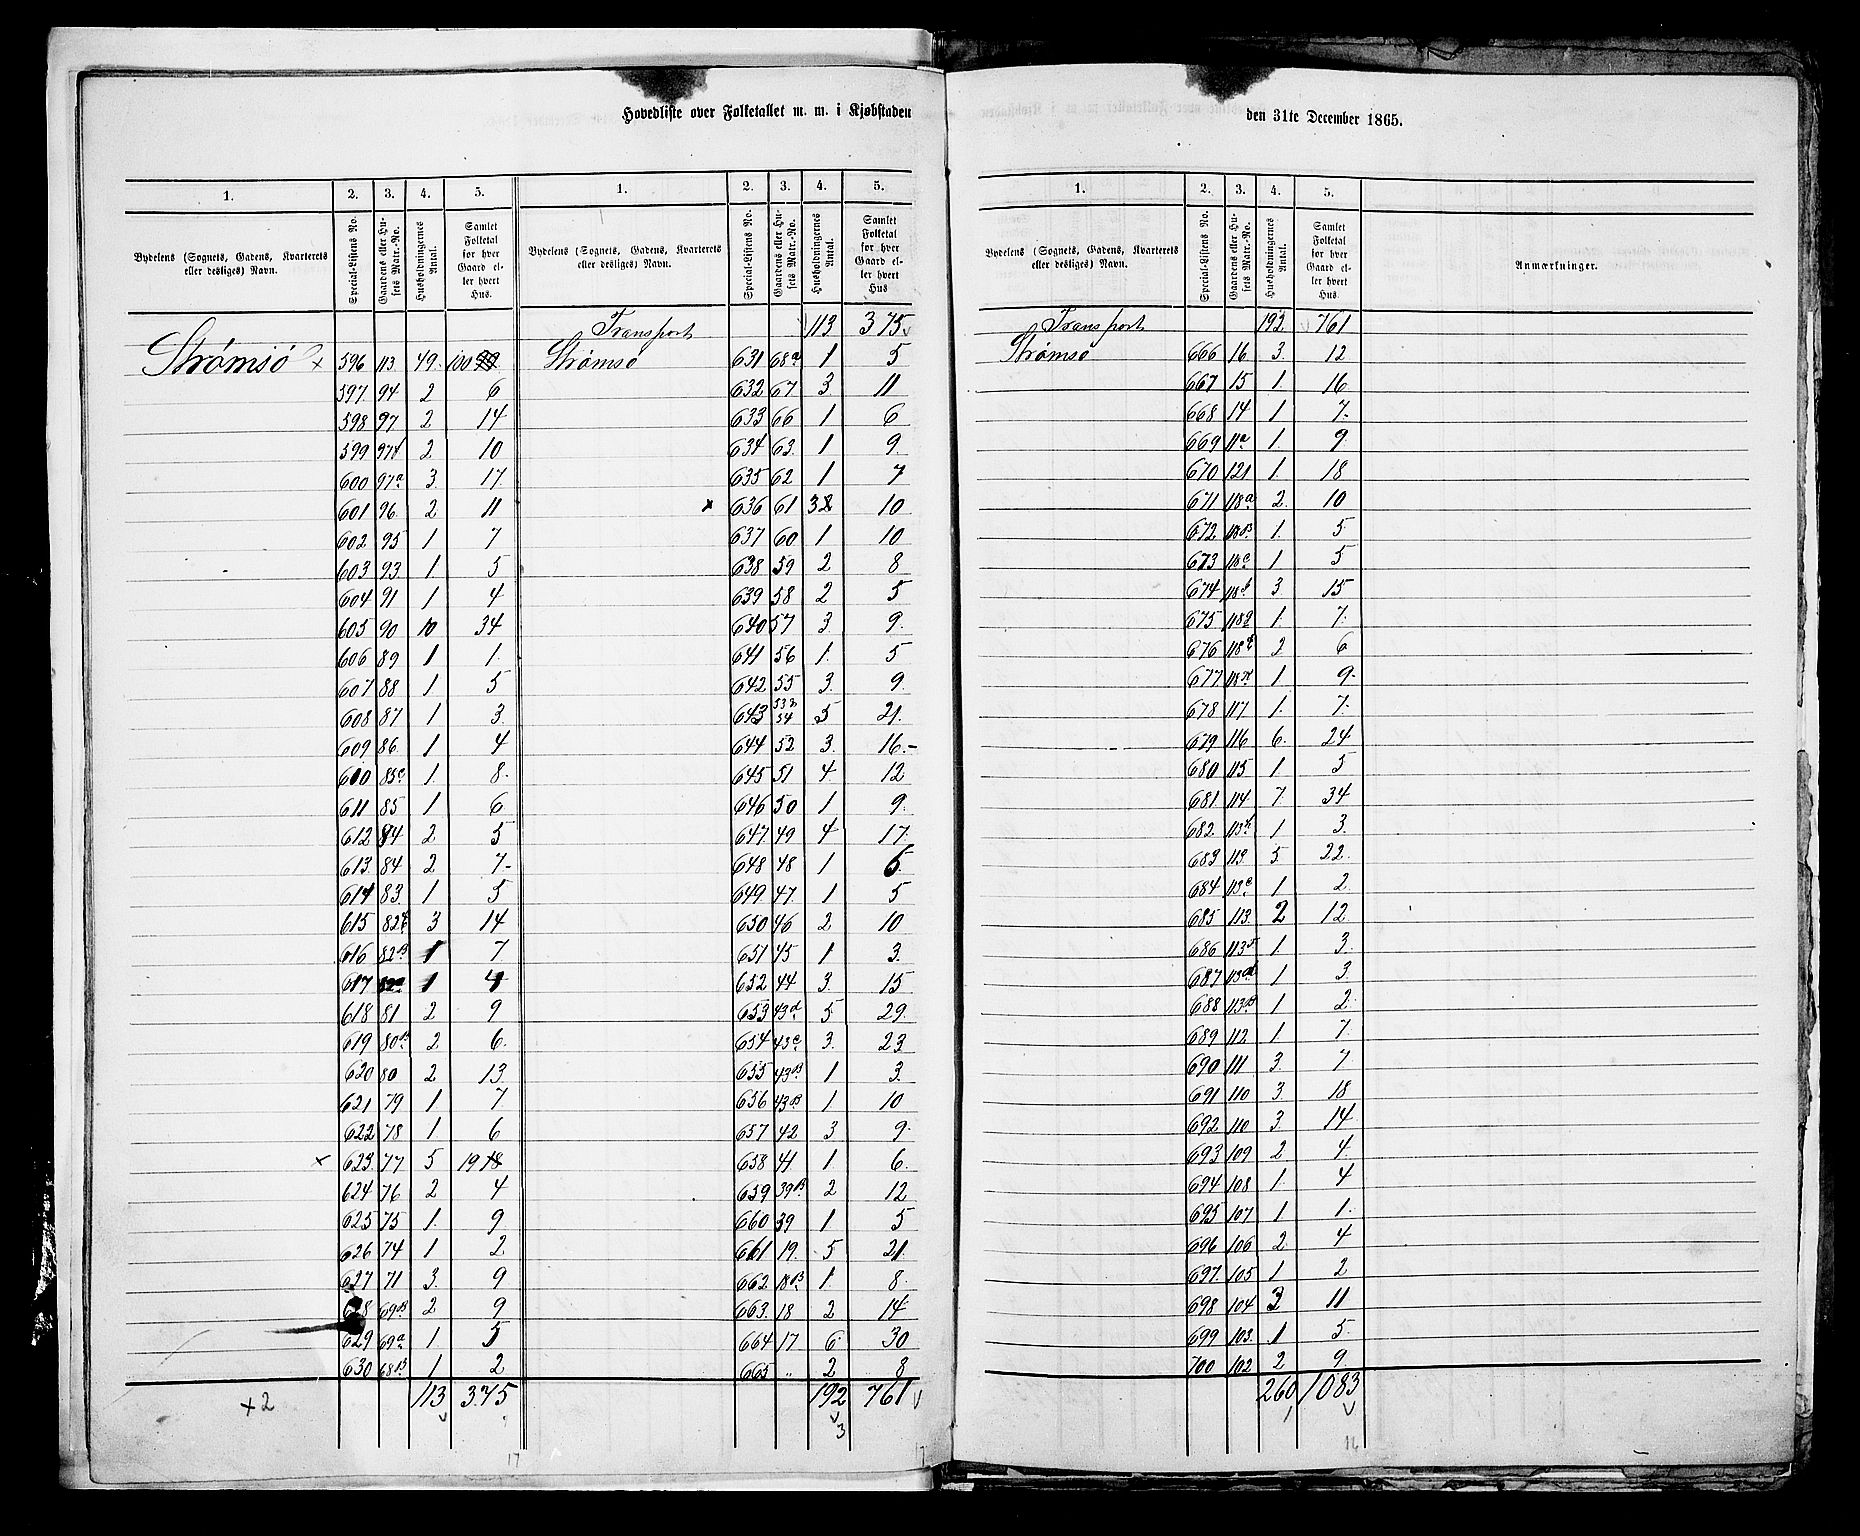 Hovedliste over Folketallet m. m. i Kjøbstaden
1. 2. 3. 4. 5.
Bydelens (Sognets, Gadens, Kvarterets eller desliges) Navn. Special-Listens No. Gaardens eller Husets Matr.-No. Husholdningernes Antal. Samlet Folketal for hver Gaard eller hvert Hus.
Strømsø × 596 113 49. 100 99
597. 94 2 6
598 97 2 14
599 2 10
600 97a 3. 17
601 96. 2 11
602 95 1 7
603 93 1 5
604 91 1 4
605 90 10 34
606 89 1 1.
607 88 1 5
608 87 1 3.
609 86. 1 4
610 85c 1. 8.
611 85 1 6
612 84 2 5
613. 84 2 7-
614 83. 1 5
615 3 14
616 82B 1 7
617 1 4
618 81 2 9
619 80B 2. 6.
620 80 2 13.
621 79 1 7
622 78 1. 6
× 623. 77 5 19 18
624 76 2 4
625 75 1. 9
626 74 1 2
627 71 3. 9
628 69B 2 9
629 69a 1. 5
630 68B 1 2
113 375
+2
17
1. 2. 3. 4. 5.
Bydelens (Sognets, Gadens, Kvarterets eller desliges) Navn. Special-Listens No. Gaardens eller Husets Matr.-No. Husholdningernes Antal. Samlet Folketal for hver Gaard eller hvert Hus
Transport 113 375
Strømsø 631 68a 1 5
632 67 3. 11
633 66 1 6
634 63. 1 9.
635 62 1 7
× 636 61 32 10
637 60 1 10
638 59 2 8
639 58 2 5
640 57 3. 9.
641 56 1. 5
642 55 3. 9.
643 53 & 54 5 21.
644 52 3. 16.-
645 51 4. 12
646 50 1 9.
647. 49 4 17.
648 48 1 5.
649 47. 1 5
650 46 2 10
651 45 1 3.
652 44 3. 15
653 43d 5 29
654 43c 3. 23
655 43B 1 3.
656 43B 1 10
657 42 3 9.
658 41 1. 6.
659 39B 2 12
660 39 1 5
661 19. 5 21.
662. 18B 1. 8.
663. 18 2 14
664 17 6. 30
665 „ 2 8
192 761
3
den 31te December 1865.
1. 2. 3. 4. 5.
Bydelens (Sognets, Gadens, Kvarterets eller desliges) Navn. Special-Listens No. Gaardens eller Husets Matr.-No. Husholdningernes Antal. Samlet Folketal for hver Gaard eller hvert Hus. Anmærkninger.
Transport 192. 761
Strømsø 666 16 3. 12
667 15 1. 16
668 14 1 7-
669 11a 1. 9.
670 121 1. 18
671 118a 2. 10
672 118B 1. 5
673 118c 1 5
674 3 15
675 1. 7.
676 2 6
677 1 9-
678 117 1. 7-
679 116 6. 24
680 115 1 5
681 114 7. 34
682. 1 3.
683 113 5. 22.
684 113e 1 2
685 113. 2 12
686 1 3.
687 113d 1 3.
688 113B 1 2.
689 112. 1 7.
690 111 3. 7
691 110 3. 18
692 110 3. 14
693 109 2 4.
694 108 1. 4
695 107 1 1.
696 106 2. 4
697. 105 1 2
698 104 3 11
699 103. 1 5.
700 102 2 9.
260 1083
16